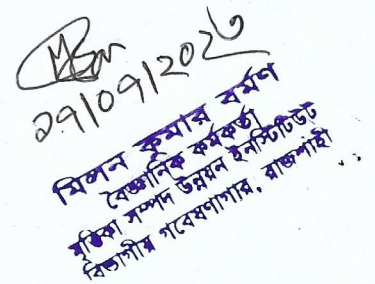 ২৭/০৭/২০২৩
মিলন কুমার বর্মণ
বৈজ্ঞানিক কর্মকর্তা
মৃত্তিকা সম্পদ উন্নয়ন ইনস্টিটিউট
বিভাগীয় গবেষণাগার, রাজশাহী